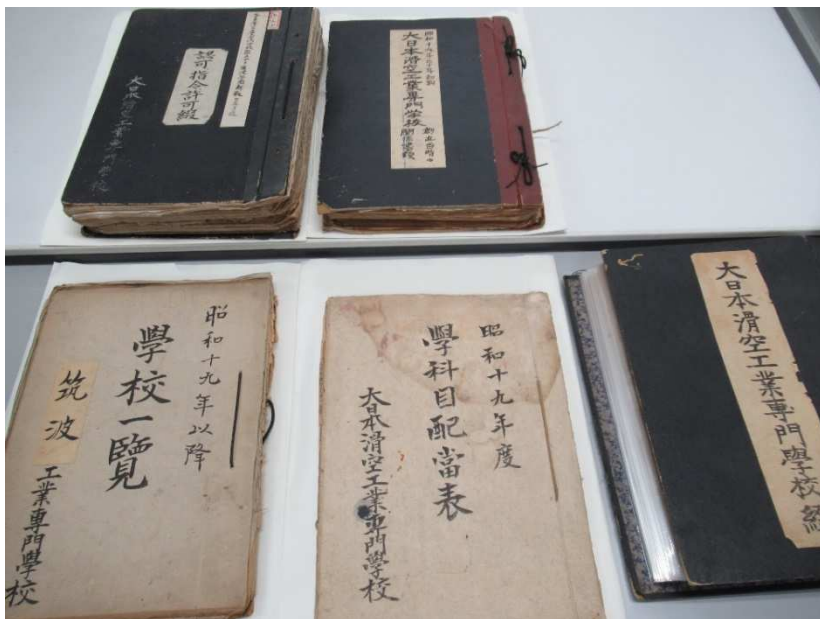 認可指令許可綴
大日本滑空工業専門学校
大日本滑空工業専門学校
創立当時ノ
関係書類
昭和十九年以降
學校一覽
筑波
工業專門學校
昭和十九年度
學科目配當表
大日本滑空工業專門學校
大日本滑空工業専門學校